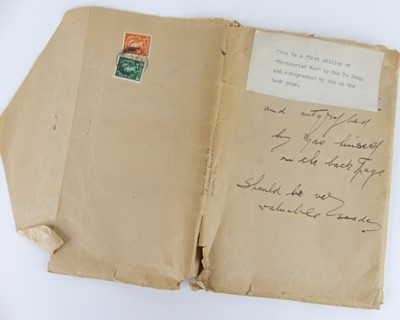 This is a first edition of
and autographed by him on the
back page.
and autographed
by Mao himself
on the back page
Should be very
valuable someday